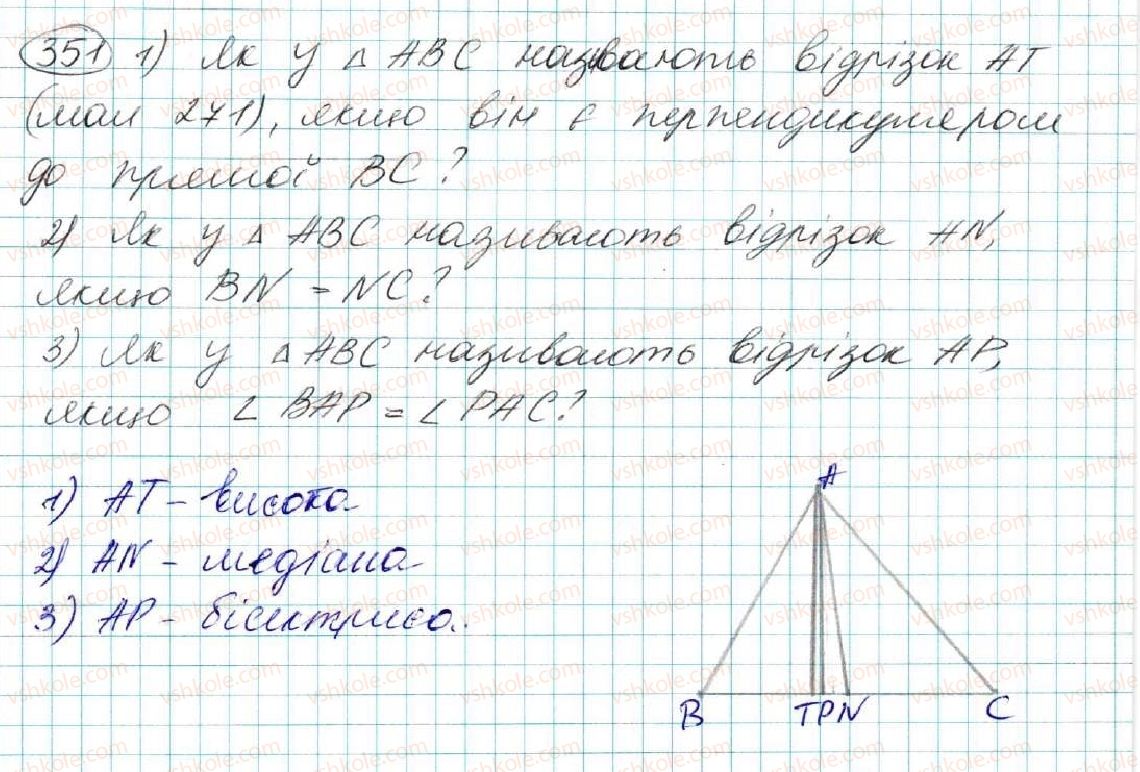 351 1) Як у △ ABC називають відрізок AT
(мал 271), якщо він є перпендикуляром
до прямої BC?
2) Як у △ ABC називають відрізок AN,
якщо BN = NC?
3) Як у △ ABC називають відрізок AP,
якщо ∠ BAP = ∠ PAC?
1) AT - висота
2) AN - медіана
3) AP - бісектриса.
A
B T P N C
vshkole.com